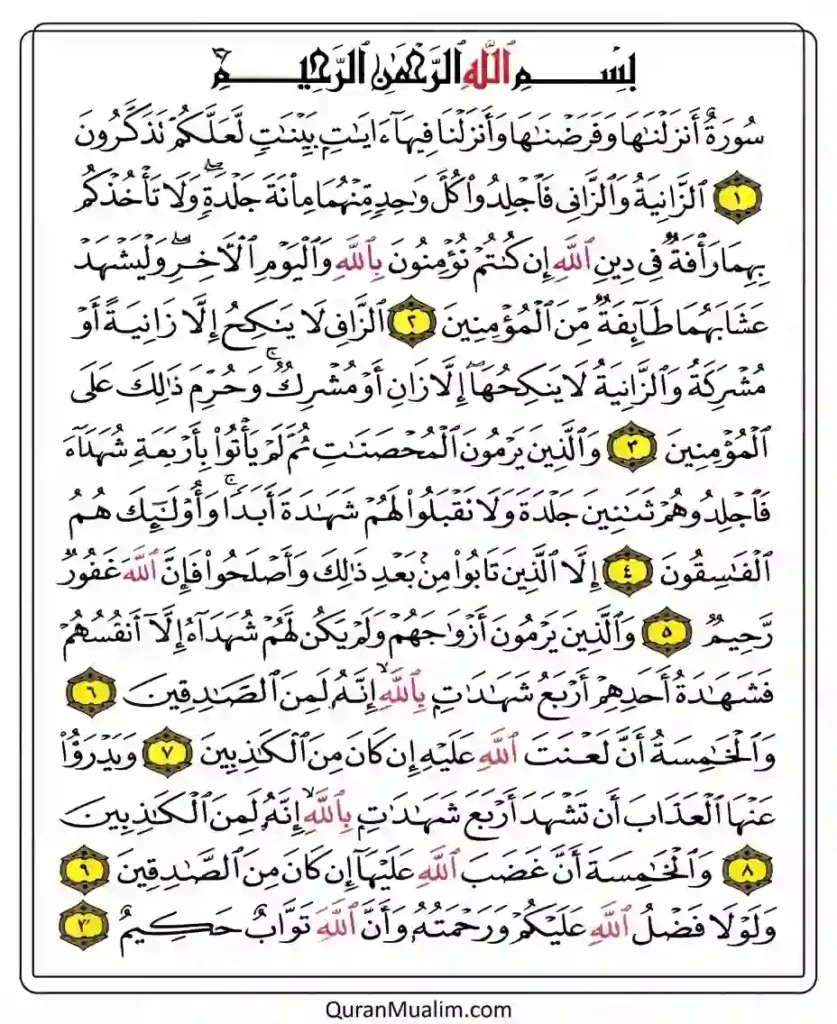 بِسْمِ ٱللَّهِ ٱلرَّحْمَٰنِ ٱلرَّحِيمِ
سُورَةٌ أَنزَلْنَٰهَا وَفَرَضْنَٰهَا وَأَنزَلْنَا فِيهَآ ءَايَٰتٍۭ بَيِّنَٰتٍ لَّعَلَّكُمْ تَذَكَّرُونَ
١ ٱلزَّانِيَةُ وَٱلزَّانِى فَٱجْلِدُوا۟ كُلَّ وَٰحِدٍ مِّنْهُمَا مِا۟ئَةَ جَلْدَةٍ ۖ وَلَا تَأْخُذْكُم
بِهِمَا رَأْفَةٌ فِى دِينِ ٱللَّهِ إِن كُنتُمْ تُؤْمِنُونَ بِٱللَّهِ وَٱلْيَوْمِ ٱلْآخِرِ ۖ وَلْيَشْهَدْ
عَشَابَهُمَا طَآئِفَةٌ مِّنَ ٱلْمُؤْمِنِينَ ٢ ٱلزَّافِى لَا يَنكِحُ إِلَّا زَانِيَةً أَوْ
مُشْرِكَةً وَٱلزَّانِيَةُ لَا يَنكِحُهَآ إِلَّا زَانٍ أَوْ مُشْرِكٌ ۚ وَحُرِّمَ ذَٰلِكَ عَلَى
ٱلْمُؤْمِنِينَ ٣ وَٱلَّذِينَ يَرْمُونَ ٱلْمُحْصَنَٰتِ ثُمَّ لَمْ يَأْتُوا۟ بِأَرْبَعَةِ شُهَدَآءَ
فَٱجْلِدُوهُمْ ثَمَٰنِينَ جَلْدَةً وَلَا تَقْبَلُوا۟ لَهُمْ شَهَٰدَةً أَبَدًا ۚ وَأُو۟لَٰٓئِكَ هُمُ
ٱلْفَٰسِقُونَ ٤ إِلَّا ٱلَّذِينَ تَابُوا۟ مِنۢ بَعْدِ ذَٰلِكَ وَأَصْلَحُوا۟ فَإِنَّ ٱللَّهَ غَفُورٌ
رَّحِيمٌ ٥ وَٱلَّذِينَ يَرْمُونَ أَزْوَٰجَهُمْ وَلَمْ يَكُن لَّهُمْ شُهَدَآءُ إِلَّآ أَنفُسُهُمْ
فَشَهَٰدَةُ أَحَدِهِمْ أَرْبَعُ شَهَٰدَٰتٍۭ بِٱللَّهِ ۙ إِنَّهُۥ لَمِنَ ٱلصَّٰدِقِينَ ٦
وَٱلْخَٰمِسَةُ أَنَّ لَعْنَتَ ٱللَّهِ عَلَيْهِ إِن كَانَ مِنَ ٱلْكَٰذِبِينَ ٧ وَيَدْرَؤُا۟
عَنْهَا ٱلْعَذَابَ أَن تَشْهَدَ أَرْبَعَ شَهَٰدَٰتٍۭ بِٱللَّهِ ۙ إِنَّهُۥ لَمِنَ ٱلْكَٰذِبِينَ
٨ وَٱلْخَٰمِسَةَ أَنَّ غَضَبَ ٱللَّهِ عَلَيْهَآ إِن كَانَ مِنَ ٱلصَّٰدِقِينَ ٩
وَلَوْلَا فَضْلُ ٱللَّهِ عَلَيْكُمْ وَرَحْمَتُهُۥ وَأَنَّ ٱللَّهَ تَوَّابٌ حَكِيمٌ
QuranMualim.com